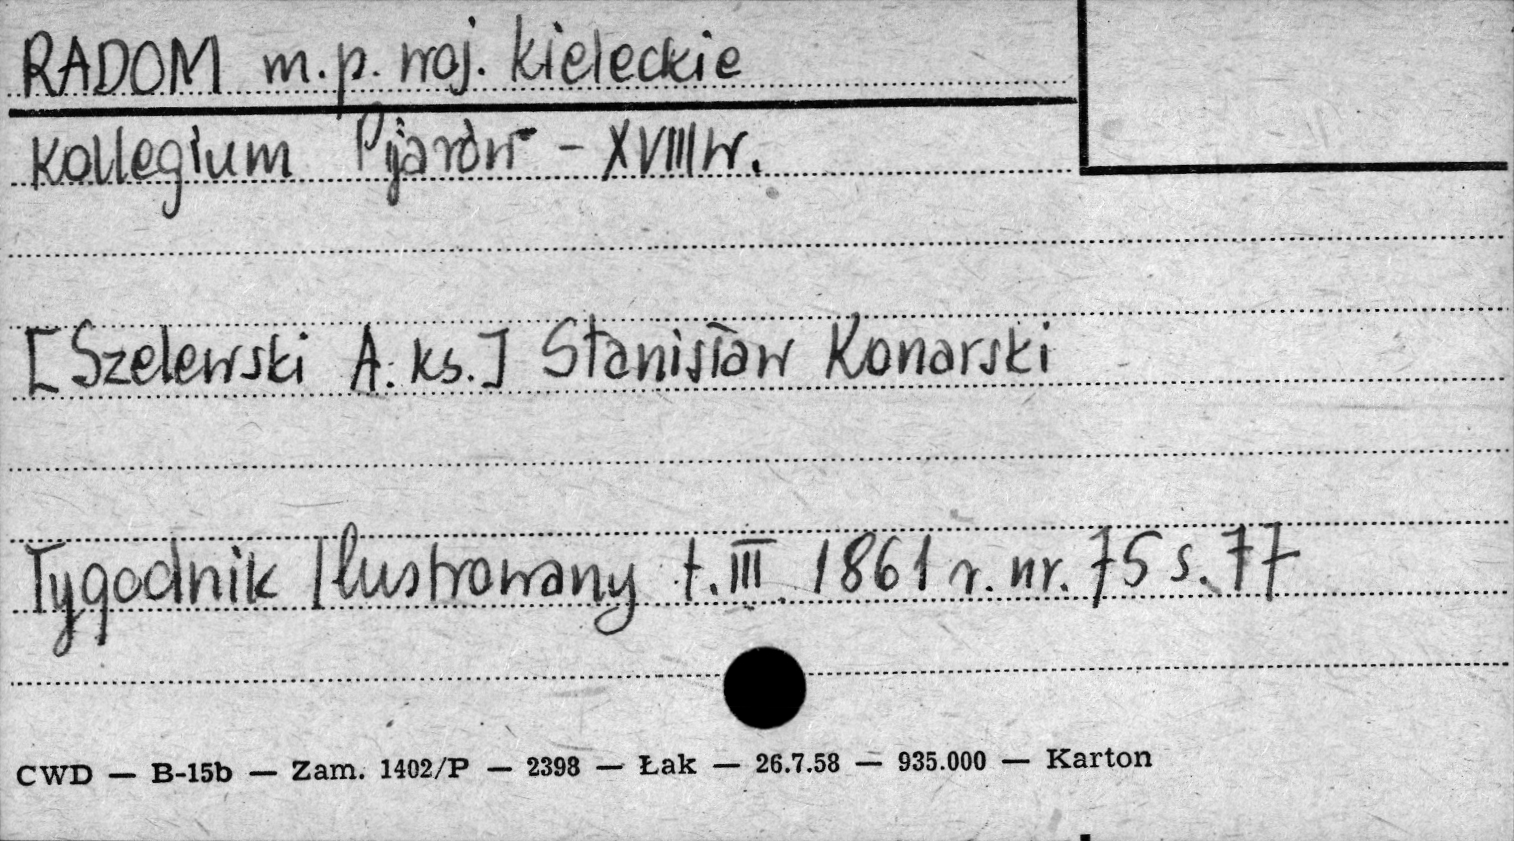 RADOM m.p. woj. kieleckie
Kollegium Pijarów - XVIII w.
[Szelewski A. ks.] Stanisław Konarski
Tygodnik Ilustrowany t. III 1861 r. nr. 75 s. 77
CWD — B-15b — Zam. 1402/P — 2398 — Łak — 26.7.58 — 935.000 — Karton